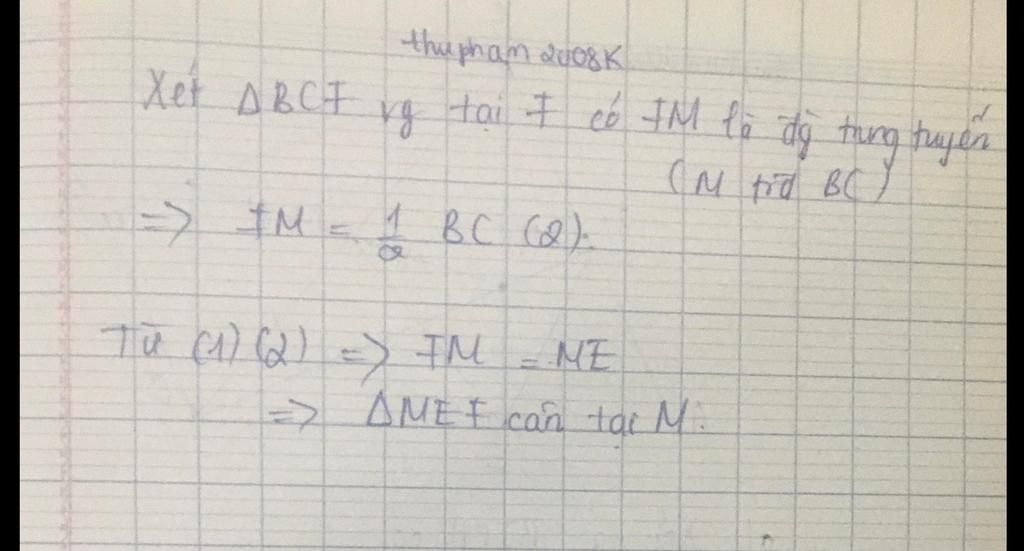 thuphạm 2008K
Xét ΔBCF vg tại F có FM là đg trung tuyến
(M trđ BC)
=> FM = 1/2 BC (2).
Từ (1) (2) => FM = ME
=> ΔMEF cân tại M.